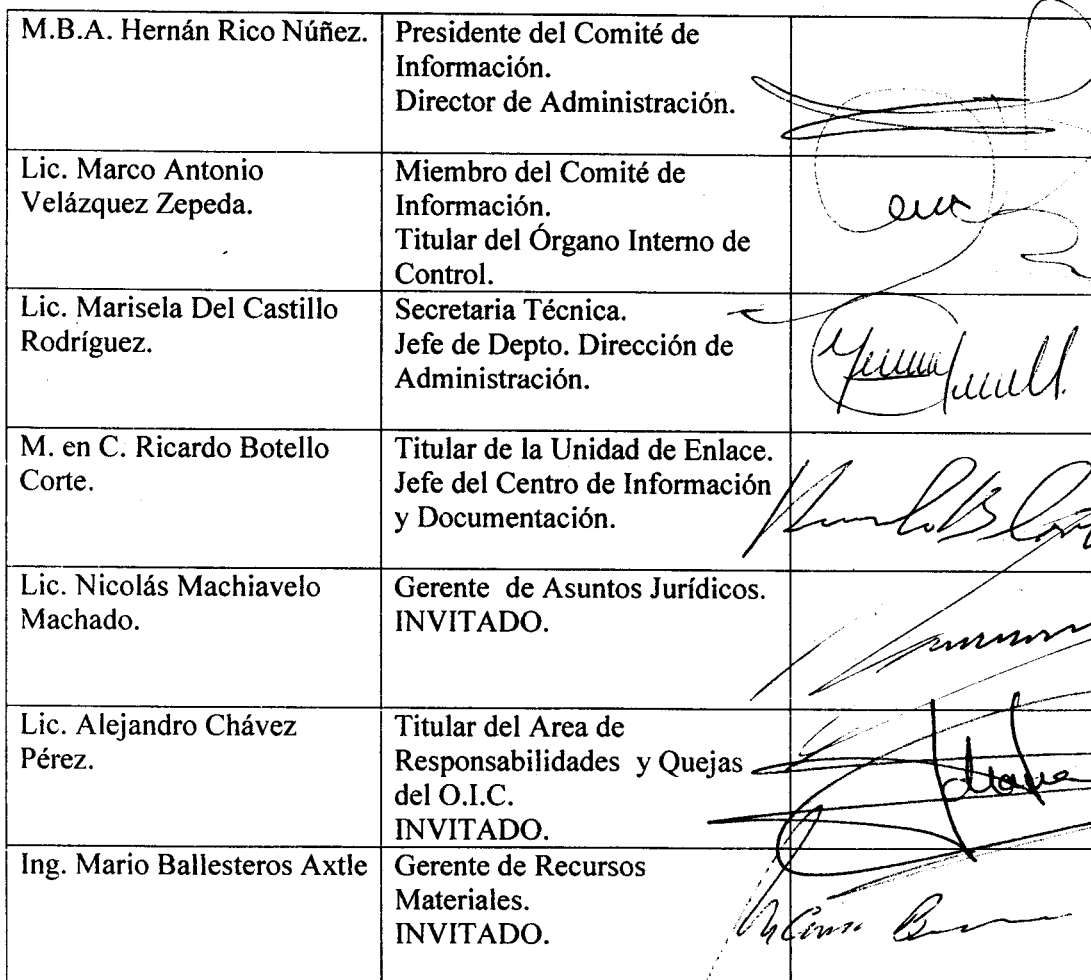 M.B.A. Hernán Rico Núñez.
Presidente del Comité de
Información.
Director de Administración.
Lic. Marco Antonio
Velázquez Zepeda.
Miembro del Comité de
Información.
Titular del Órgano Interno de
Control.
Lic. Marisela Del Castillo
Rodríguez.
Secretaria Técnica.
Jefe de Depto. Dirección de
Administración.
M. en C. Ricardo Botello
Corte.
Titular de la Unidad de Enlace.
Jefe del Centro de Información
y Documentación.
Lic. Nicolás Machiavelo
Machado.
Gerente  de Asuntos Jurídicos.
INVITADO.
Lic. Alejandro Chávez
Pérez.
Titular del Area de
Responsabilidades  y Quejas
del O.I.C.
INVITADO.
Ing. Mario Ballesteros Axtle
Gerente de Recursos
Materiales.
INVITADO.